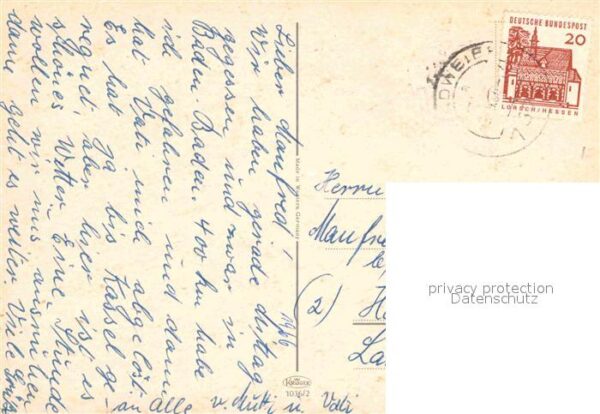 Lieber Manfred!
Wir haben gerade Mittag
gegessen und zwar in
Baden-Baden. 400 km habe
ich gefahren und dann
hat Vati mich abgelöst.
Es hat ja bis Kassel ge-
regnet, aber hier ist es
schönes Wetter. Eine Stunde
wollen wir uns ausruhen
dann geht es weiter. Viele Grüße
an Alle v. Mutti u. Vati
DEUTSCHE BUNDESPOST
20
LORSCH/HESSEN
Herrn
Manfre
(2) H
La
Made in Western Germany
Krüger
1036/2
privacy protection
Datenschutz